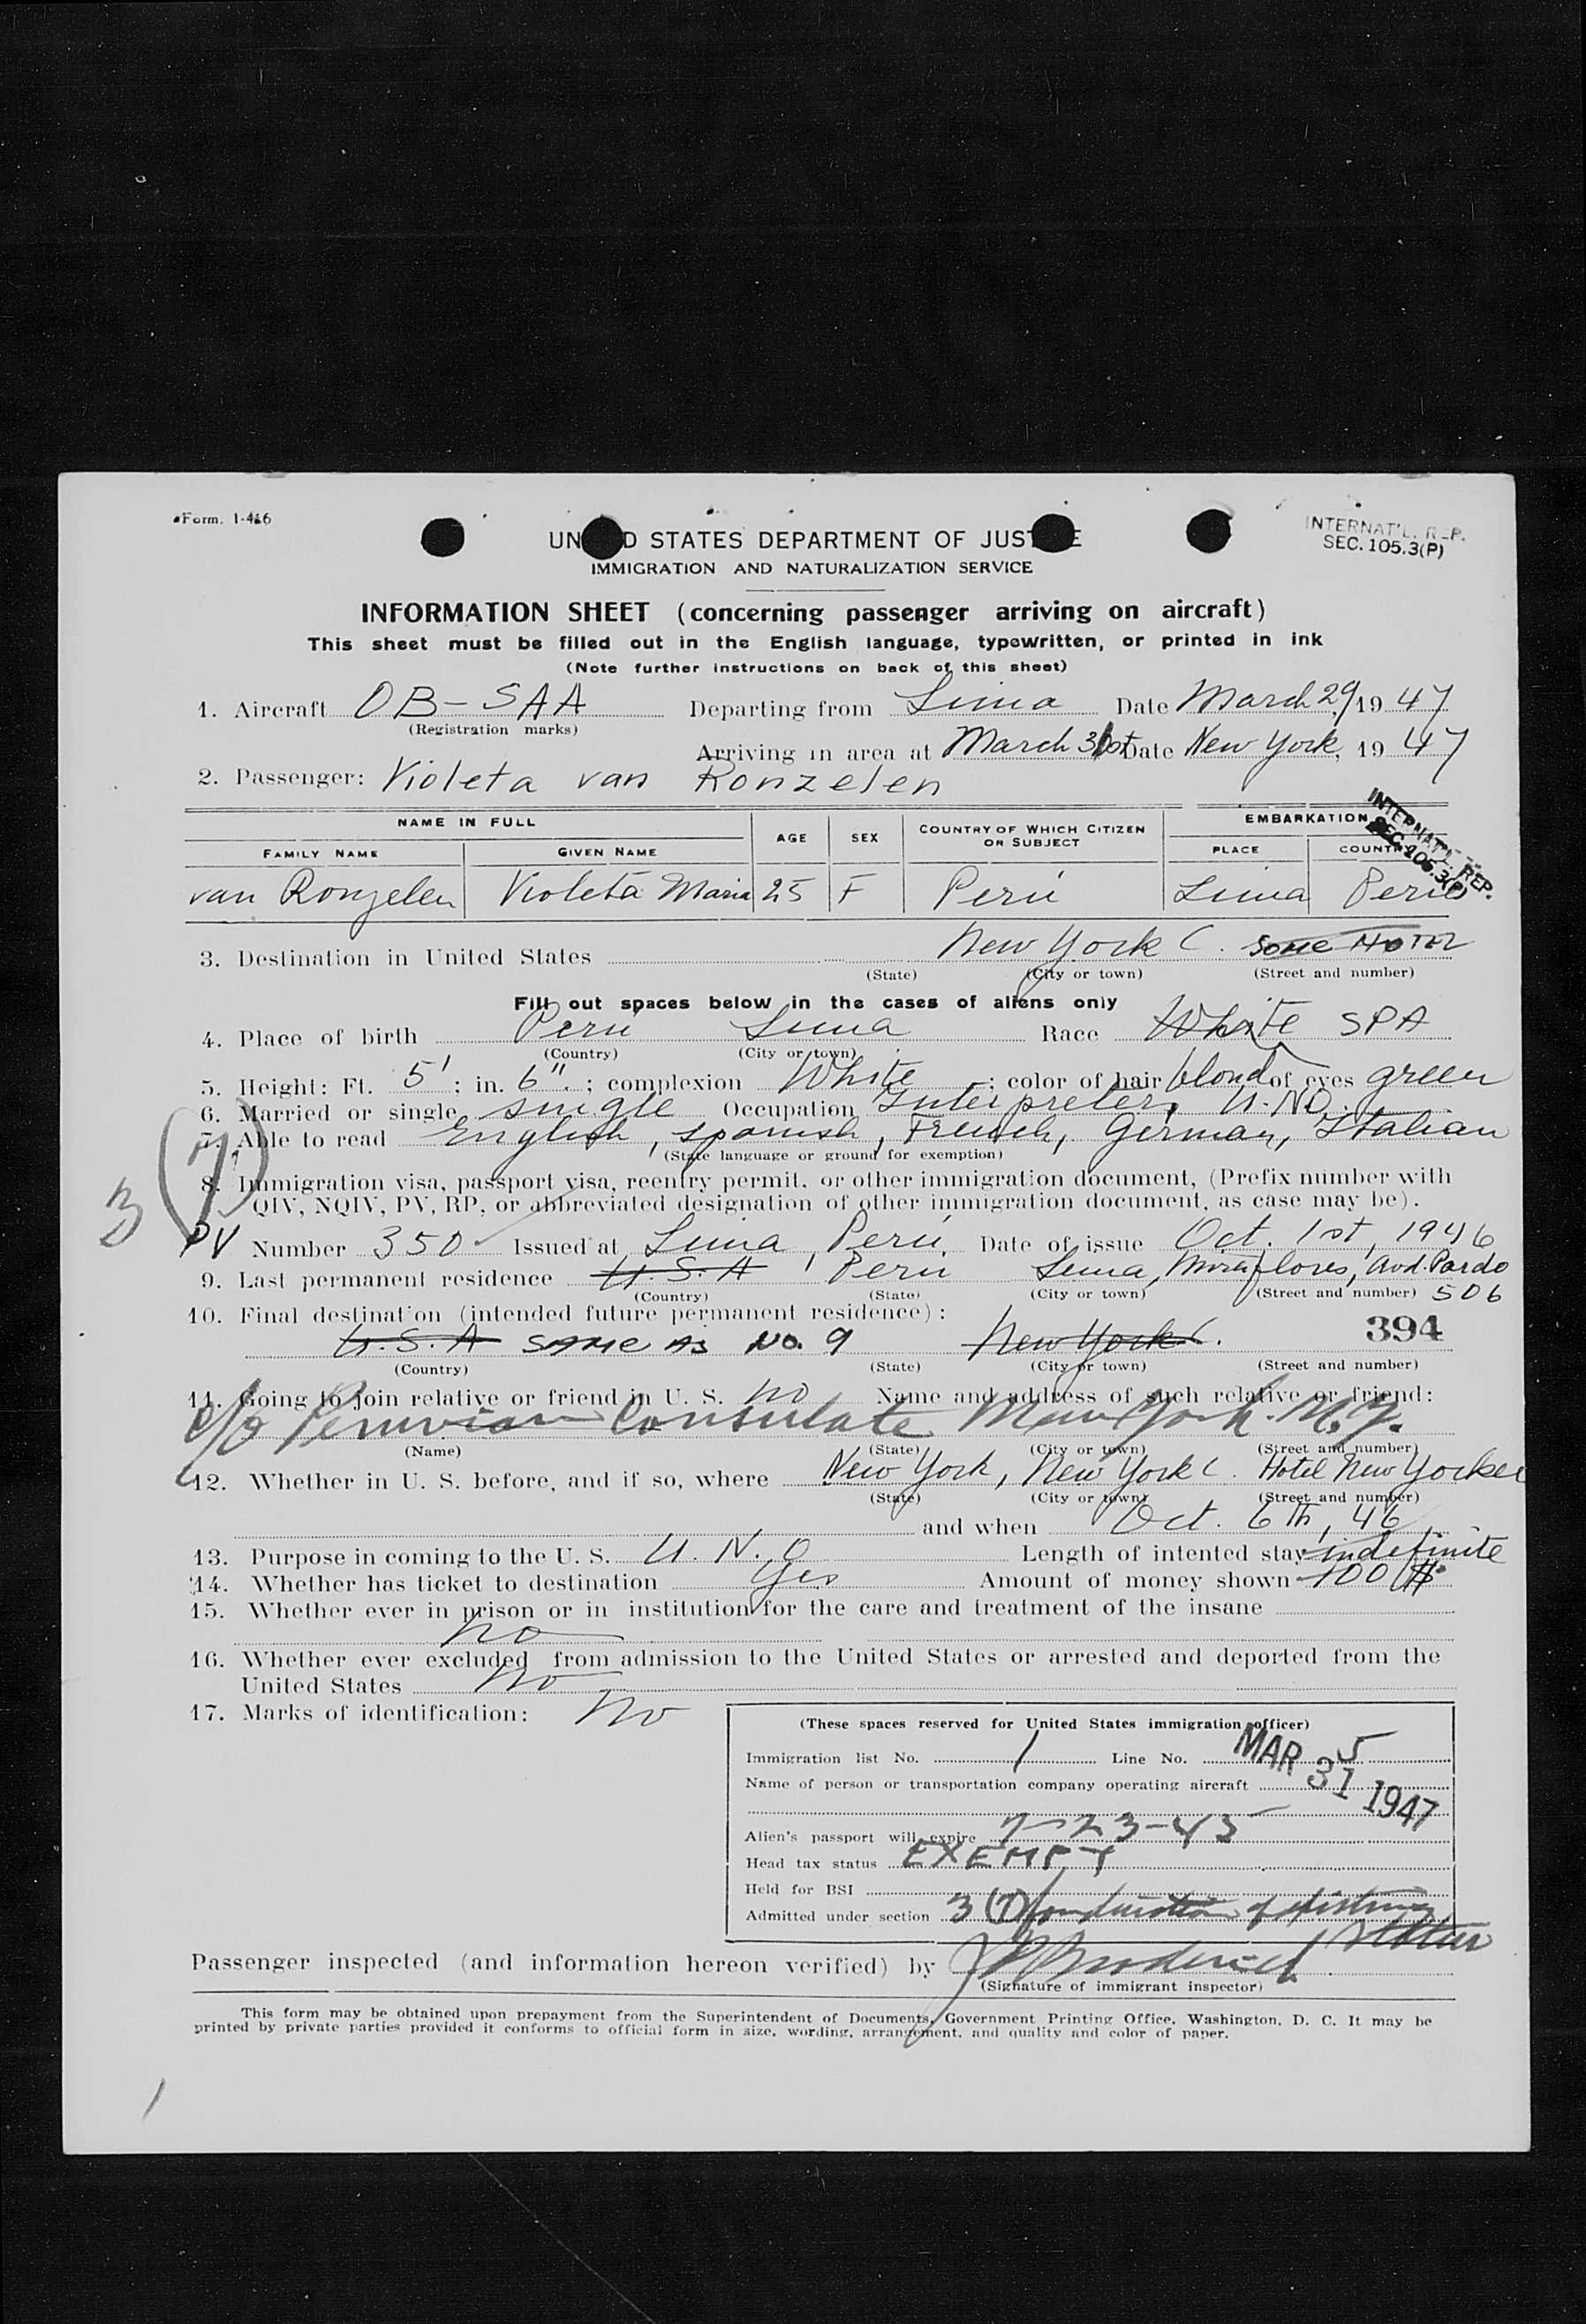 Form. I-416
INTERNAT'L. REP.
SEC. 105.3(P)
UNITED STATES DEPARTMENT OF JUSTICE
IMMIGRATION AND NATURALIZATION SERVICE
INFORMATION SHEET (concerning passenger arriving on aircraft)
This sheet must be filled out in the English language, typewritten, or printed in ink
(Note further instructions on back of this sheet)
1. Aircraft OB-SAA Departing from Lima Date March 29, 1947
(Registration marks)
Arriving in area at March 31st Date New York, 1947
2. Passenger: Violeta van Ronzelen
NAME IN FULL AGE SEX COUNTRY OF WHICH CITIZEN OR SUBJECT EMBARKATION
FAMILY NAME GIVEN NAME PLACE COUNTRY
INTERNAT'L REP.
SEC. 105.3(P)
van Ronzelen Violeta Maria 25 F Perú Lima Perú
3. Destination in United States New York C. some HOTEL
(State) (City or town) (Street and number)
Fill out spaces below in the cases of aliens only
4. Place of birth Peru Lima Race White SPA
(Country) (City or town)
5. Height: Ft. 5'; in. 6".; complexion White; color of hair blond of eyes green
6. Married or single single Occupation Interpreter, U.N.O.
7. Able to read English, spanish, French, German, Italian
(State language or ground for exemption)
3 (7)
8. Immigration visa, passport visa, reentry permit. or other immigration document, (Prefix number with
QIV, NQIV, PV, RP, or abbreviated designation of other immigration document, as case may be).
PV Number 350 Issued at Lima, Perú. Date of issue Oct. 1st, 1946
9. Last permanent residence U.S.A Peru Lima, Miraflores, Avd. Pardo
(Country) (State) (City or town) (Street and number) 506
10. Final destination (intended future permanent residence):
394
U.S.A SAME AS NO. 9 New York C.
(Country) (State) (City or town) (Street and number)
11. Going to join relative or friend in U. S. no Name and address of such relative or friend:
c/o Peruvian Consulate New York. N.Y.
(Name) (State) (City or town) (Street and number)
12. Whether in U. S. before, and if so, where New York, New York C. Hotel New Yorker
(State) (City or town) (Street and number)
and when Oct. 6th, 46
13. Purpose in coming to the U. S. U.N.O Length of intented stay indefinite
14. Whether has ticket to destination yes Amount of money shown 100 $
15. Whether ever in prison or in institution for the care and treatment of the insane
no
16. Whether ever excluded from admission to the United States or arrested and deported from the
United States no
17. Marks of identification: no
(These spaces reserved for United States immigration officer)
Immigration list No. 1 Line No. 5
MAR 31 1947
Name of person or transportation company operating aircraft
Alien's passport will expire
Head tax status EXEMPT
Held for BSI
Admitted under section 3(7) of status
Passenger inspected (and information hereon verified) by
(Signature of immigrant inspector)
This form may be obtained upon prepayment from the Superintendent of Documents, Government Printing Office, Washington, D. C. It may be
printed by private parties provided it conforms to official form in size, wording, arrangement, and quality and color of paper.